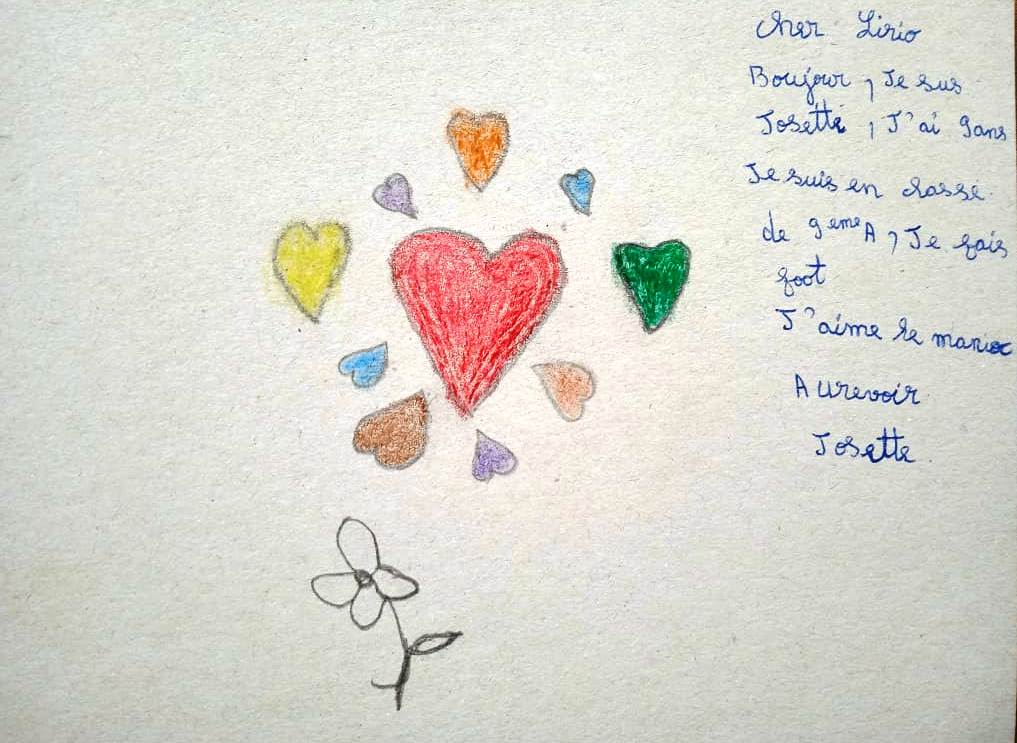 cher Lirio
Boujour, Je sus
Josette, J'ai 9ans
Je suis en classe
de 9emeA, Je fais
foot
J'aime le manioc
Aurevoir
Josette.